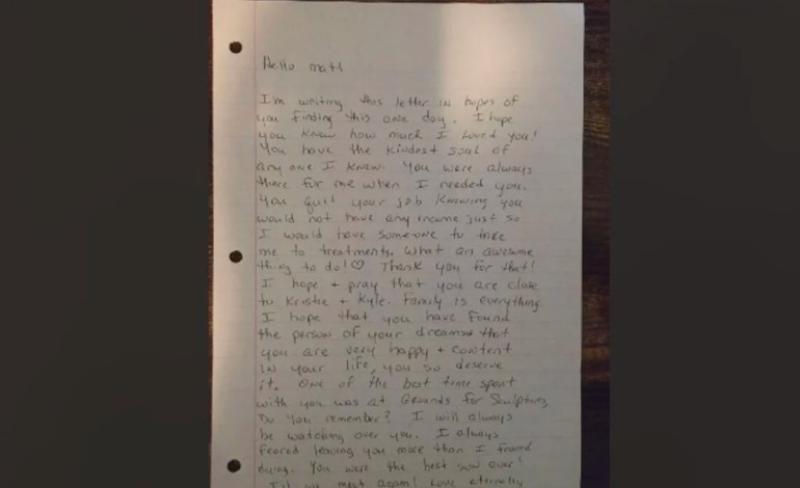 Hello Matt
I'm writing this letter in hopes of
you finding this one day. I hope
you knew how much I loved you!
You have the kindest soul of
anyone I knew. You were always
there for me when I needed you.
You quit your job knowing you
would not have any income just so
I would have someone to take
me to treatments. What an awesome
thing to do!♡ Thank you for that!
I hope + pray that you are close
to Kristie + Kyle. Family is everything.
I hope that you have found
the person of your dreams + that
you are very happy + content
in your life, you so deserve
it. One of the best time spent
with you was at Grounds for Sculpture,
Do you remember? I will always
be watching over you. I always
feared leaving you more than I feared
dying. You were the best son ever!
Til we meet again! Love eternally